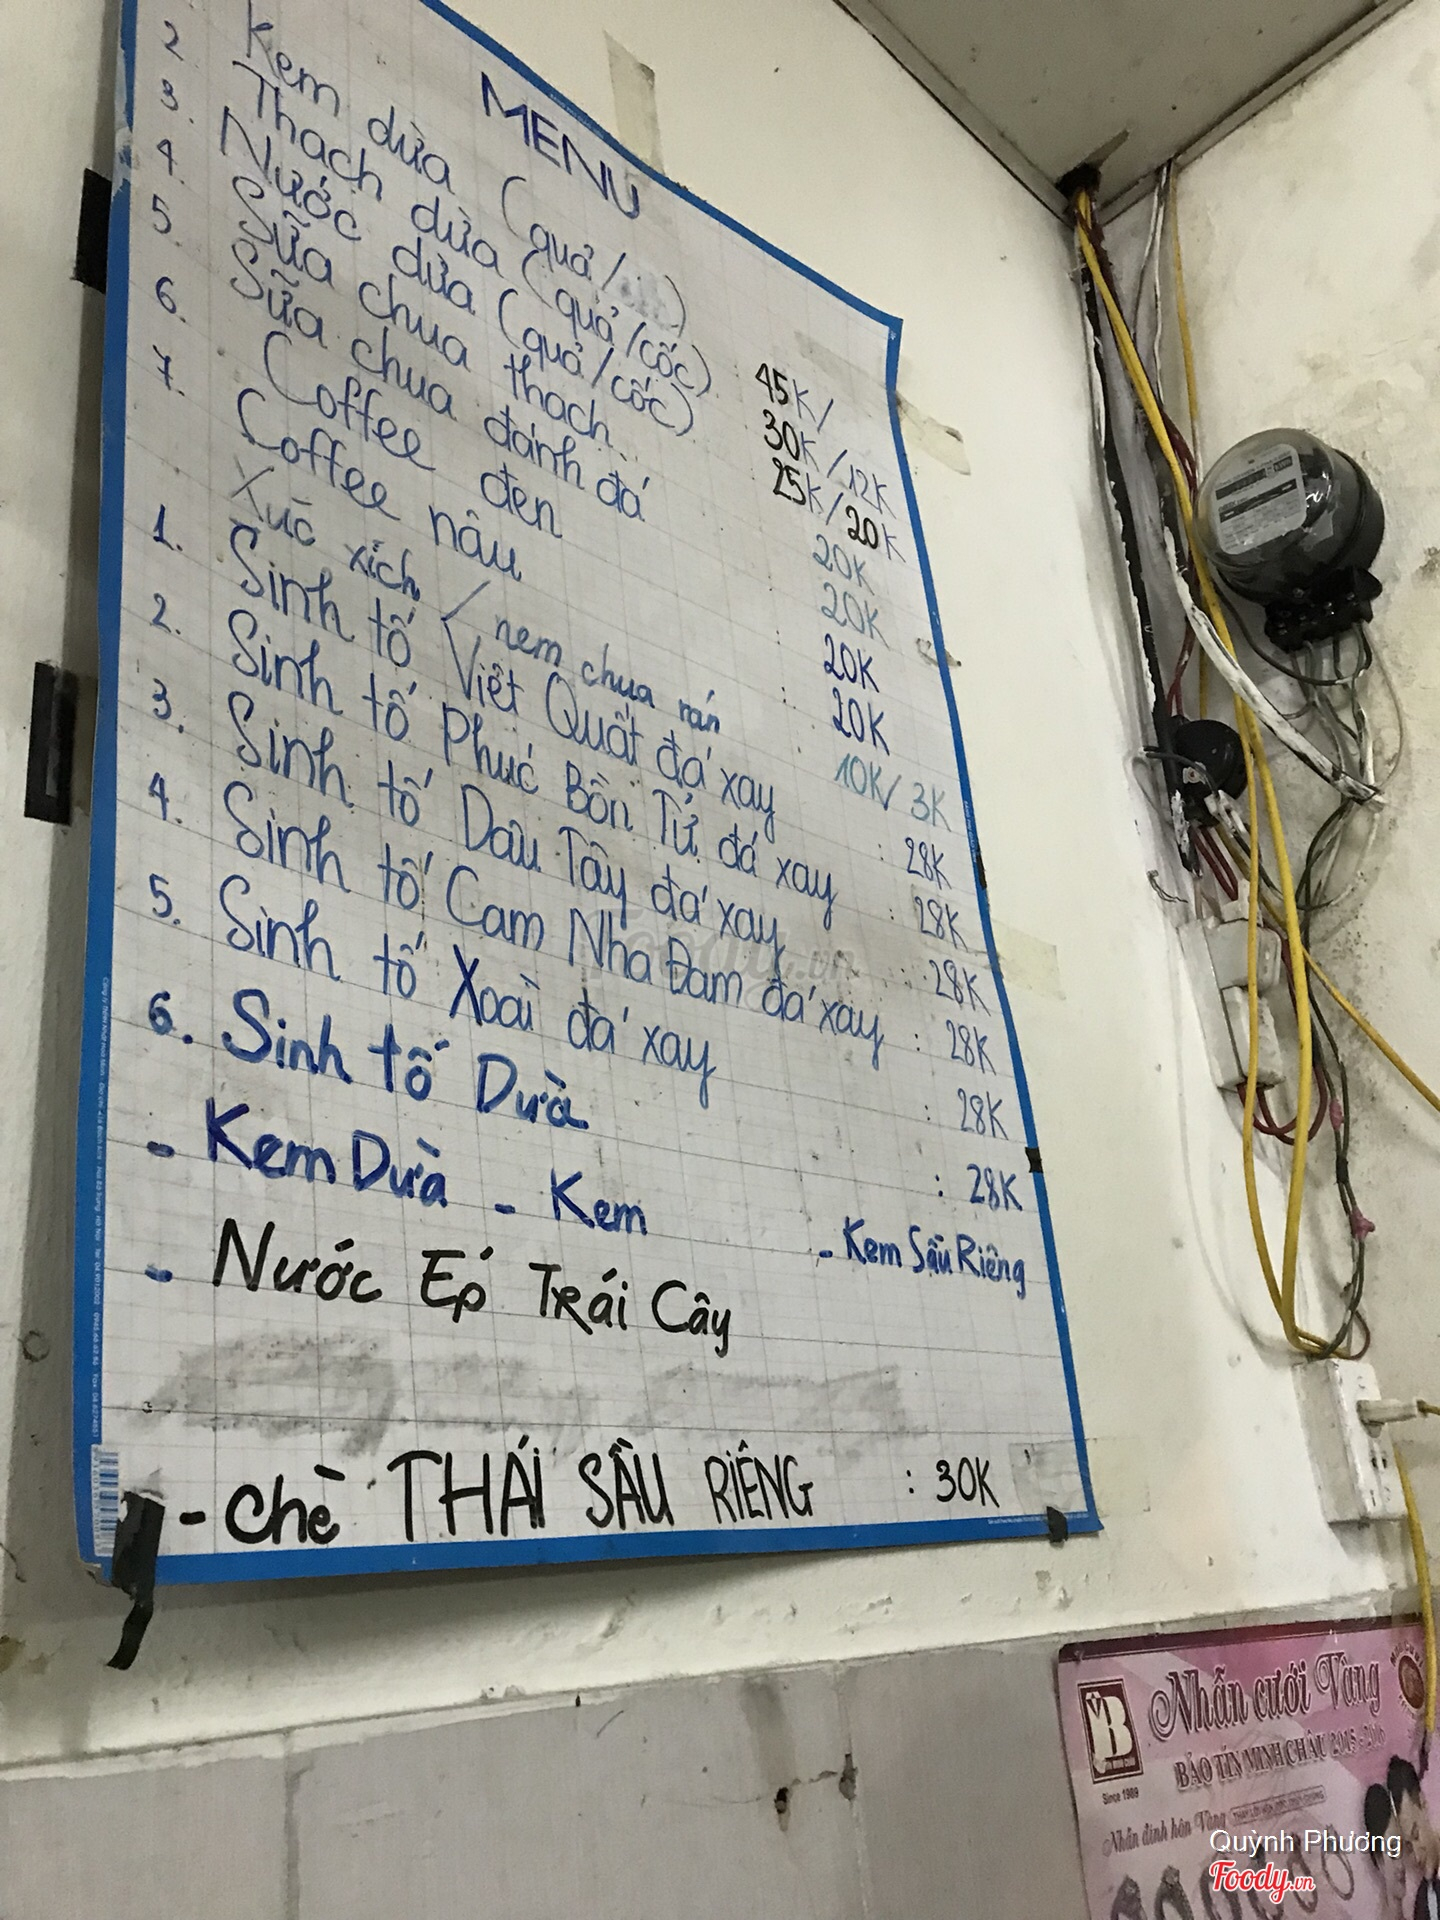 MENU
Kem dừa (quả/ ) : 45K/
2. Thạch dừa (quả/cốc) : 30K/12K
3. Nước dừa (quả/cốc) 25K/20K
4. Sữa chua thạch 20K
5. Sữa chua đánh đá 20K
6. Coffee đen : 20K
7. Coffee nâu : 20K
Xúc xích / nem chua rán : 10K/3K
1. Sinh tố Việt Quất đá xay : 28K
2. Sinh tố Phúc Bồn Tử đá xay : 28K
3. Sinh tố Dâu Tây đá xay : 28K
4. Sinh tố Cam Nha Đam đá xay : 28K
5. Sinh tố Xoài đá xay : 28K
6. Sinh tố Dừa : 28K
- Kem Dừa - Kem - Kem Sầu Riêng
- Nước Ép Trái Cây
- chè THÁI SẦU RIÊNG : 30K
Nhẫn cưới Vàng
BẢO TÍN MINH CHÂU 2015-2016
Since 1989
Nhẫn đính hôn Vàng
Quỳnh Phương
Foody.vn